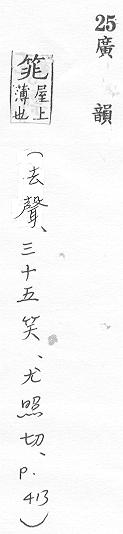 25廣韻
筄屋上薄也(去聲、三十五笑、尤照切、p.413)